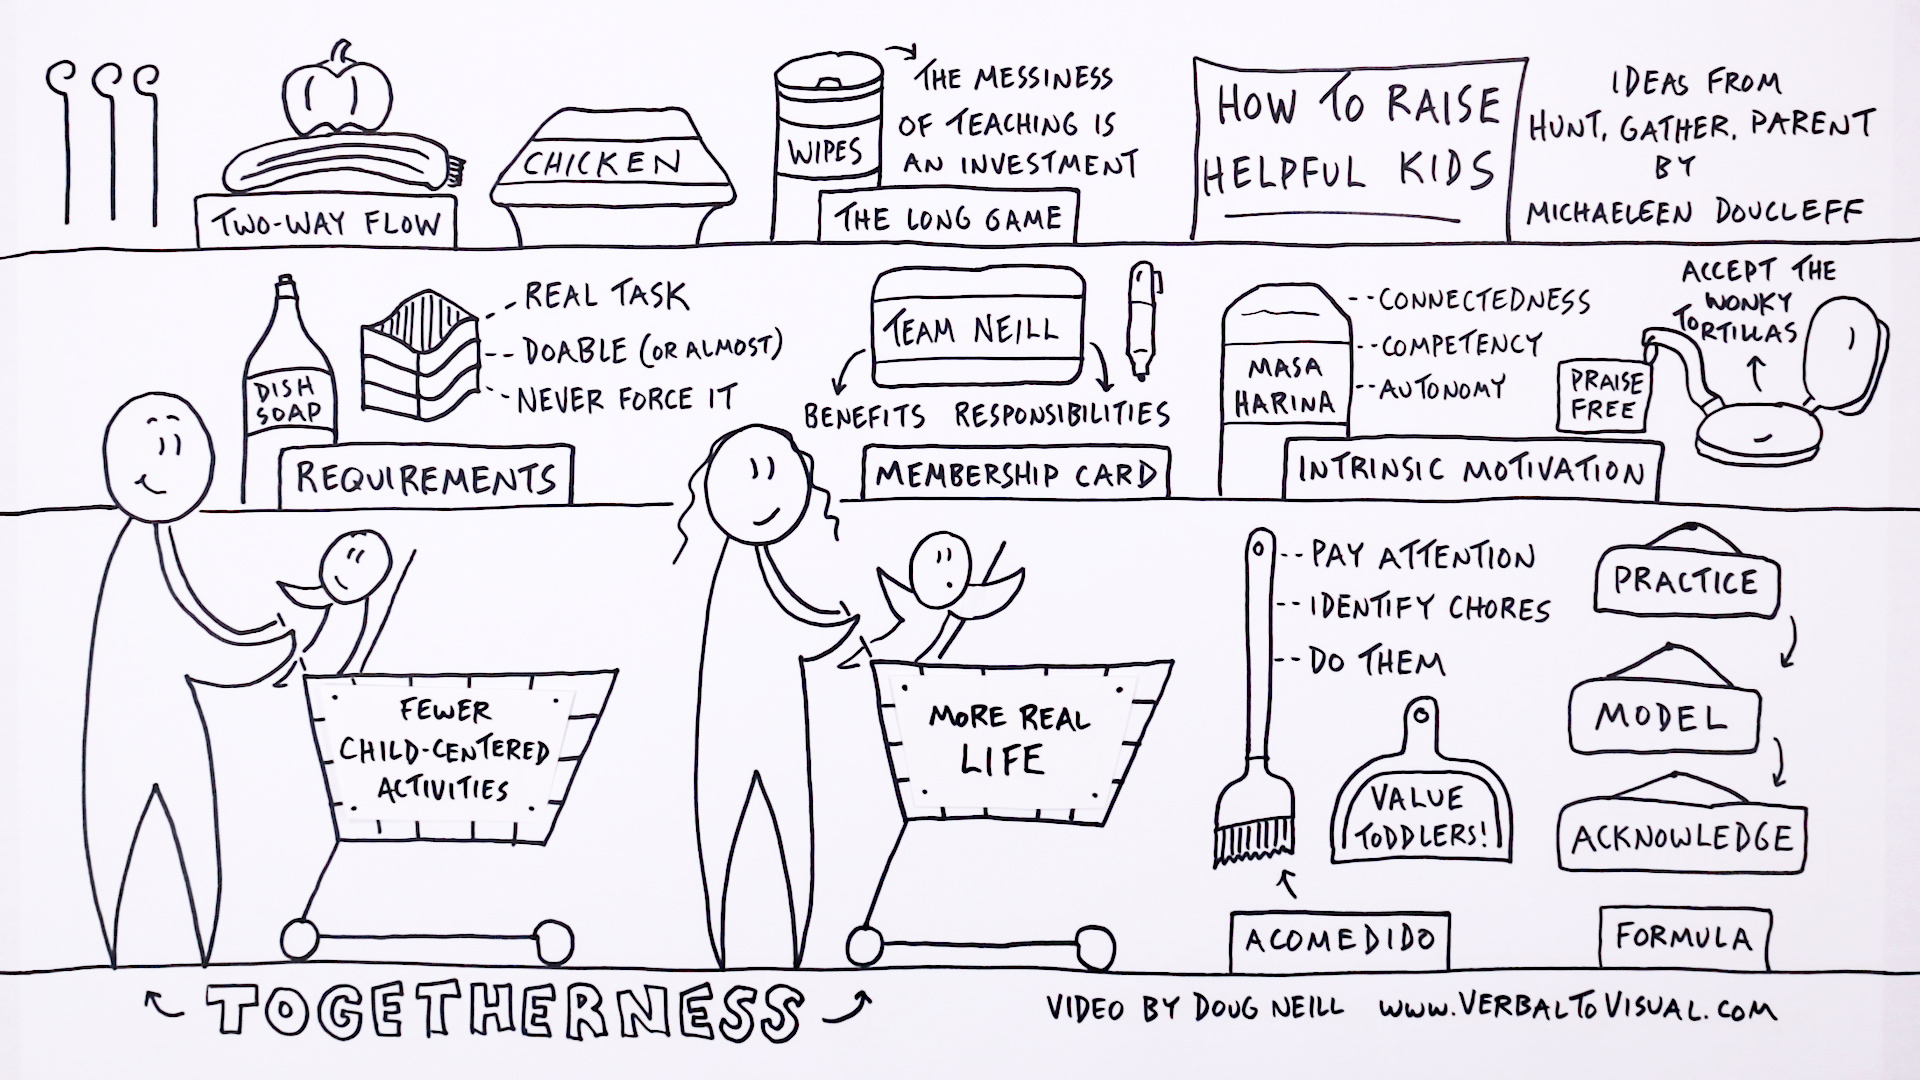 TWO-WAY FLOW
CHICKEN
WIPES
THE MESSINESS
OF TEACHING IS
AN INVESTMENT
THE LONG GAME
HOW TO RAISE
HELPFUL KIDS
IDEAS FROM
HUNT, GATHER, PARENT
BY
MICHAELEEN DOUCLEFF
DISH
SOAP
REAL TASK
DOABLE (OR ALMOST)
NEVER FORCE IT
REQUIREMENTS
TEAM NEILL
BENEFITS RESPONSIBILITIES
MEMBERSHIP CARD
MASA
HARINA
CONNECTEDNESS
COMPETENCY
AUTONOMY
PRAISE
FREE
ACCEPT THE
WONKY
TORTILLAS
INTRINSIC MOTIVATION
FEWER
CHILD-CENTERED
ACTIVITIES
MORE REAL
LIFE
PAY ATTENTION
IDENTIFY CHORES
DO THEM
VALUE
TODDLERS!
ACOMEDIDO
PRACTICE
MODEL
ACKNOWLEDGE
FORMULA
TOGETHERNESS
VIDEO BY DOUG NEILL www.VERBALTOVISUAL.COM